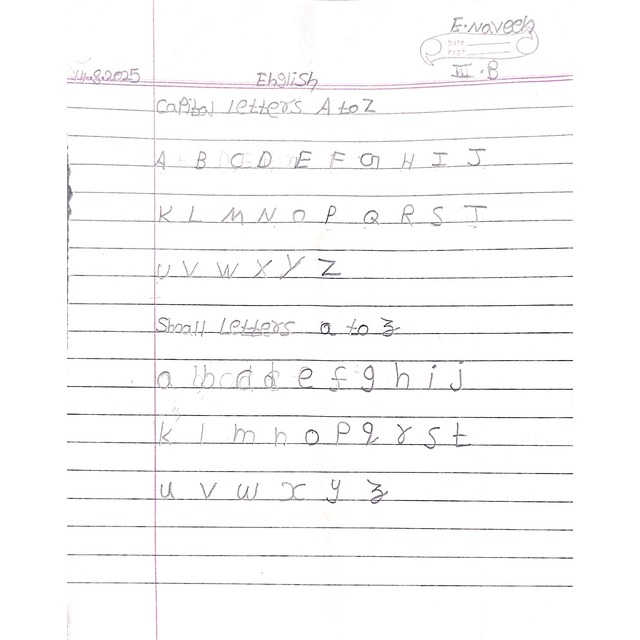 E. Naveen
Date
Page
III - B
14-8-2025
English
Capital letters A to Z
A B C D E F G H I J
K L M N O P Q R S T
U V W X Y Z
Small letters a to z
a b c d e f g h i j
k l m n o p q r s t
u v w x y z